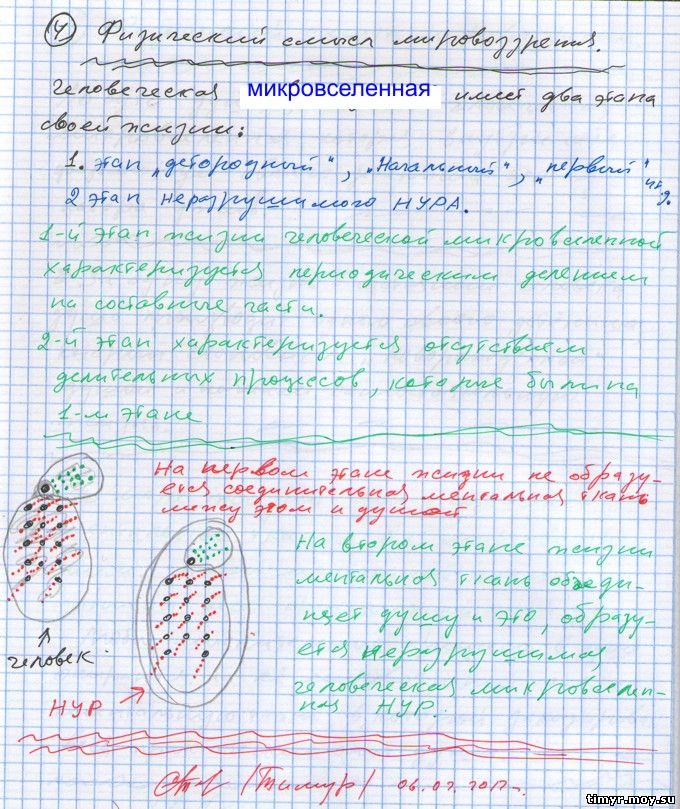 4 Физический смысл мировоззрения.
человеческая микровселенная имеет два этапа
своей жизни:
1. этап „детородный“, „Начальный“, „первый“ и т.д.
2 этап неразрушимого НУРА.
1-й этап жизни человеческой микровселенной
характеризуется периодическим делением
на составные части.
2-й этап характеризуется отсутствием
делительных процессов, которые были на
1-м этапе
На первом этапе жизни не образу-
ется соединительная ментальная ткань
межу эгом и душой
На втором этапе жизни
ментальная ткань объеди-
няет душу и эго, образу-
ется неразрушимая
человеческая микровселен-
ная НУР.
человек
НУР
/Тимур/ 06.02.2012г.
timyr.moy.su